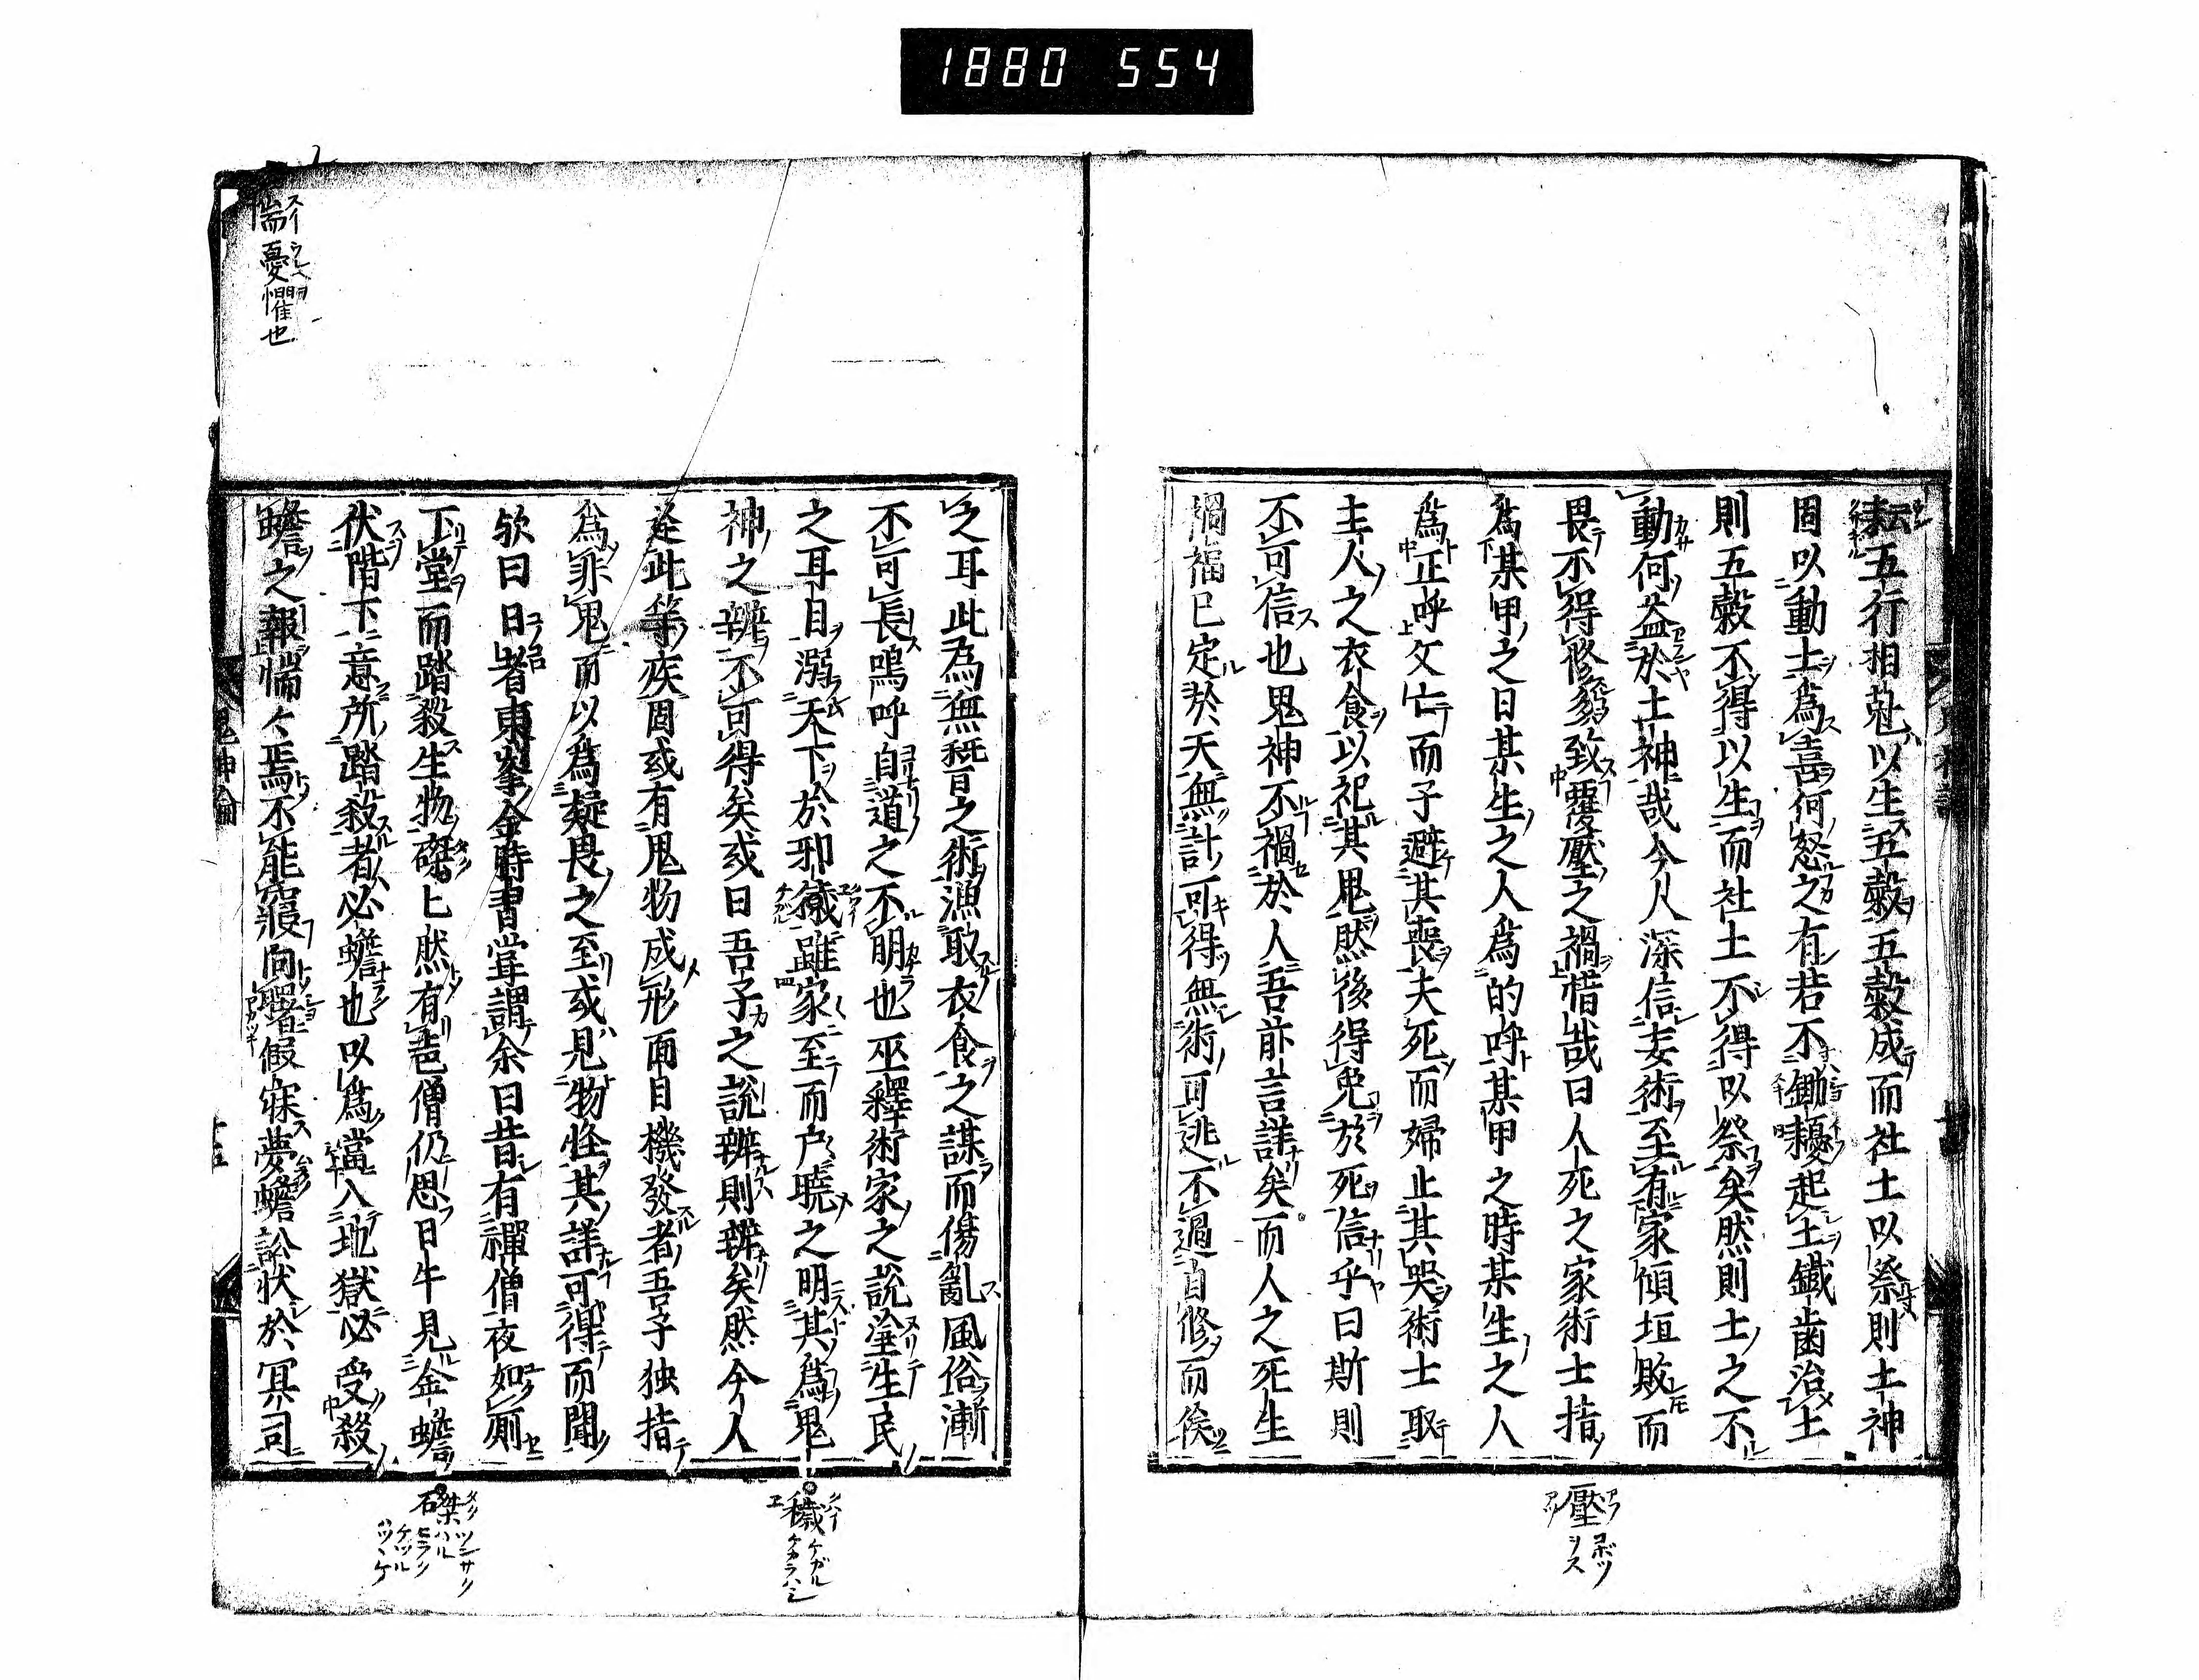 1880 554
耘五行相尅以生五穀五穀成而社土以祭則土神
固以動土為喜何怒之有若不鋤耰起土鐵歯治土
則五穀不得以生而社土不得以祭矣然則土之不
動何益於土神哉今人深信妄術至有家傾垣敗而
畏不得修多致覆壓之禍惜哉曰人死之家術士指
為某甲之日某生之人為的呼某甲之時某生之人
為正呼父亡而子避其喪夫死而婦止其哭術士取
主人之衣食以祀其鬼然後得免於死信乎曰斯則
不可信也鬼神不禍於人吾前言詳矣而人之死生
禍福已定於天無計可得無術可逃不過自修而俟
之耳此為無稽之術漁取衣食之謀而傷亂風俗漸
不可長嗚呼自道之不明也巫釋術家之說塗生民
之耳目溺天下於邪穢雖家至而户曉之明其為鬼
神之辨不可得矣或曰吾子之説辨則辨矣然今人
是此等疾固或有鬼物成形面目機發者吾子独指
為罪鬼而以為疑畏之至或見物怪其詳可得而聞
欤曰日者東峯金時書嘗謂余曰昔有禪僧夜如厠
下堂而踏殺生物磔ヒ然有芭僧仍思日午見金蟾
伏階下意所踏殺者必蟾也以為當入地獄必受殺
蟾之報惴々焉不能寢向曙假寐夢蟾訟状於冥司
鬼神論
惴憂懼也
壓
穢 ケガル
磔